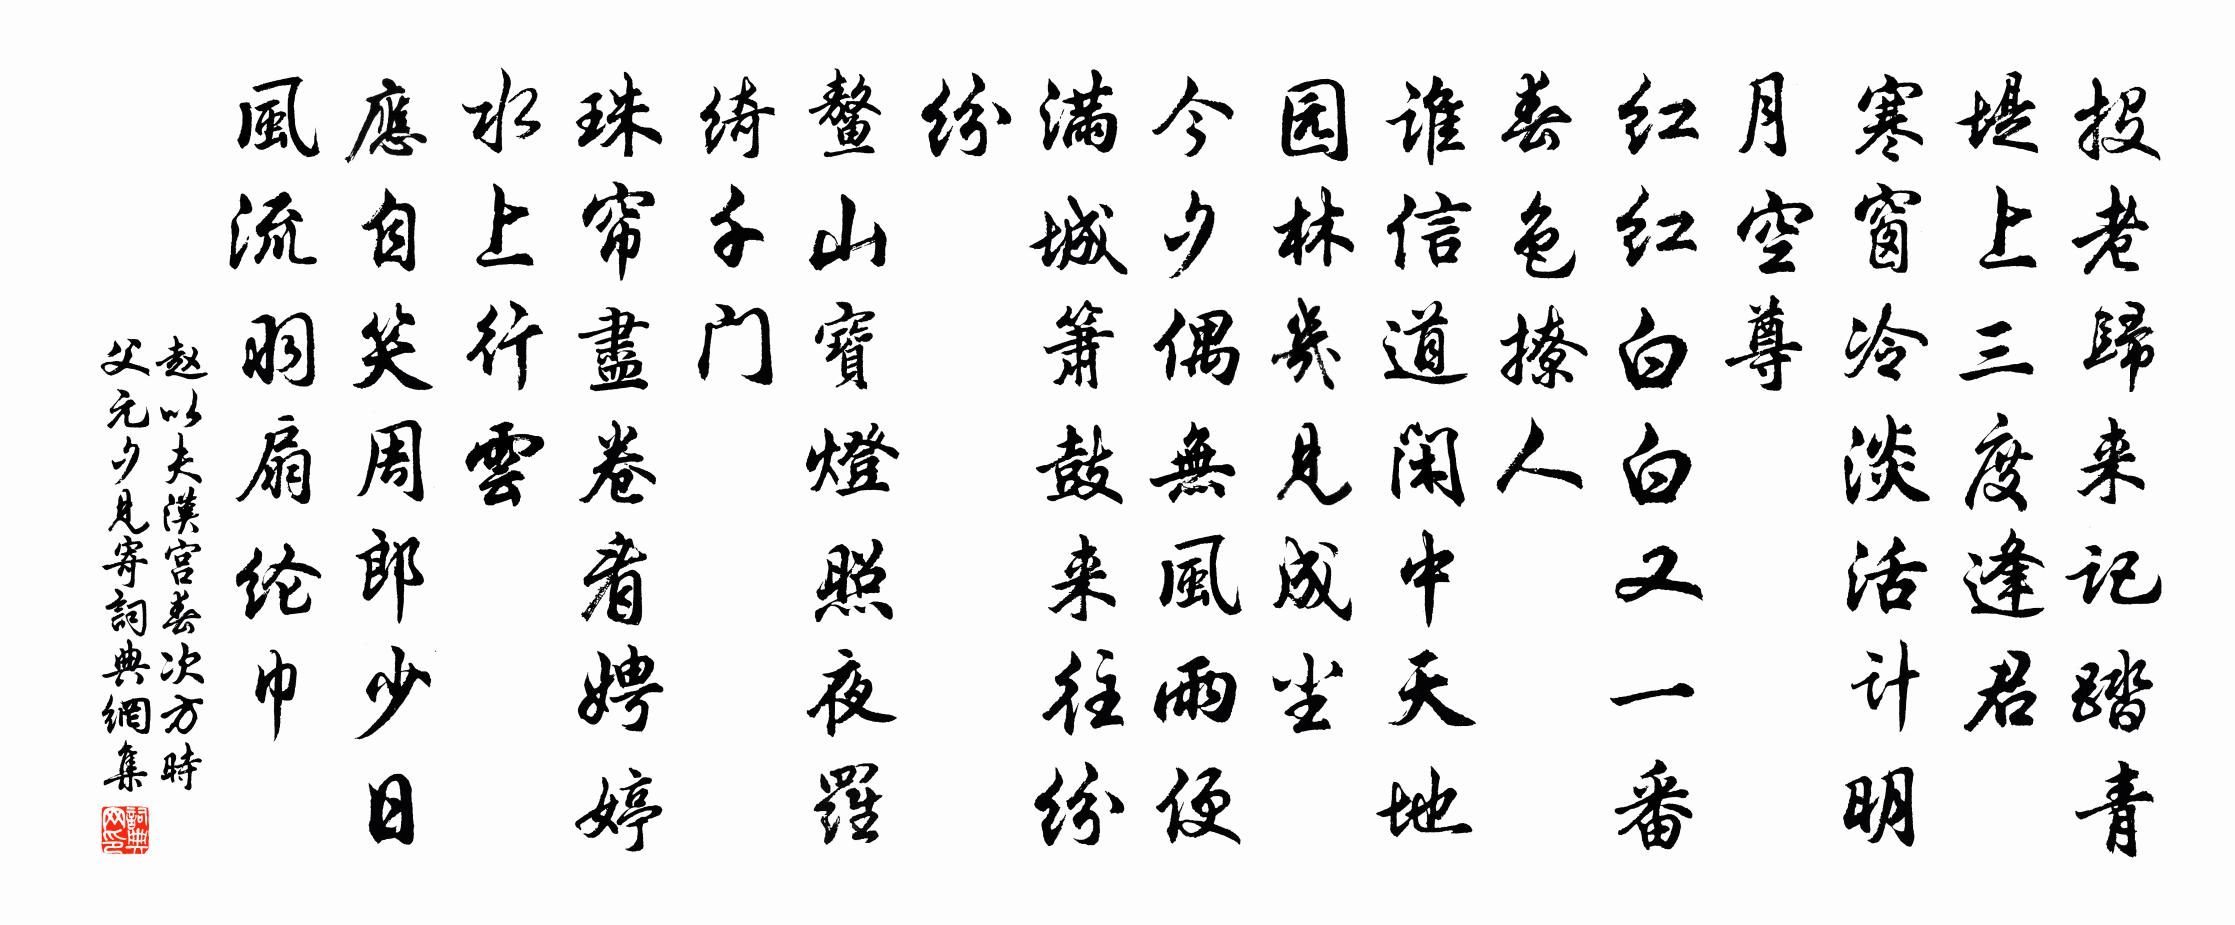 投老歸来记踏青
堤上三度逢君
寒窗冷淡活计明
月空尊
红红白白又一番
春色撩人
谁信道闲中天地
园林幾見成尘
今夕偶無風雨便
满城箫鼓来往纷
纷
鳌山寶燈照夜羅
绮千门
珠帘盡卷看娉婷
水上行雲
應自笑周郎少日
風流羽扇纶巾
赵以夫漢宫春次方時
父元夕見寄詞典網集
詞典網印